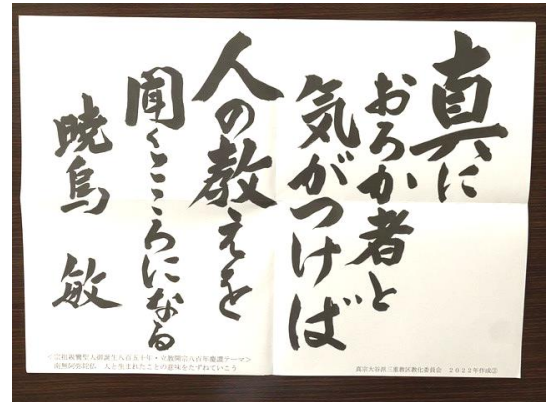 真に
おろか者と
気がつけば
人の教えを
聞くこころになる
暁烏 敏
<宗祖親鸞聖人御誕生八百五十年・立教開宗八百年慶讃テーマ>
南無阿弥陀仏 人と生まれたことの意味をたずねていこう
真宗大谷派三重教区教化委員会 2022年作成②